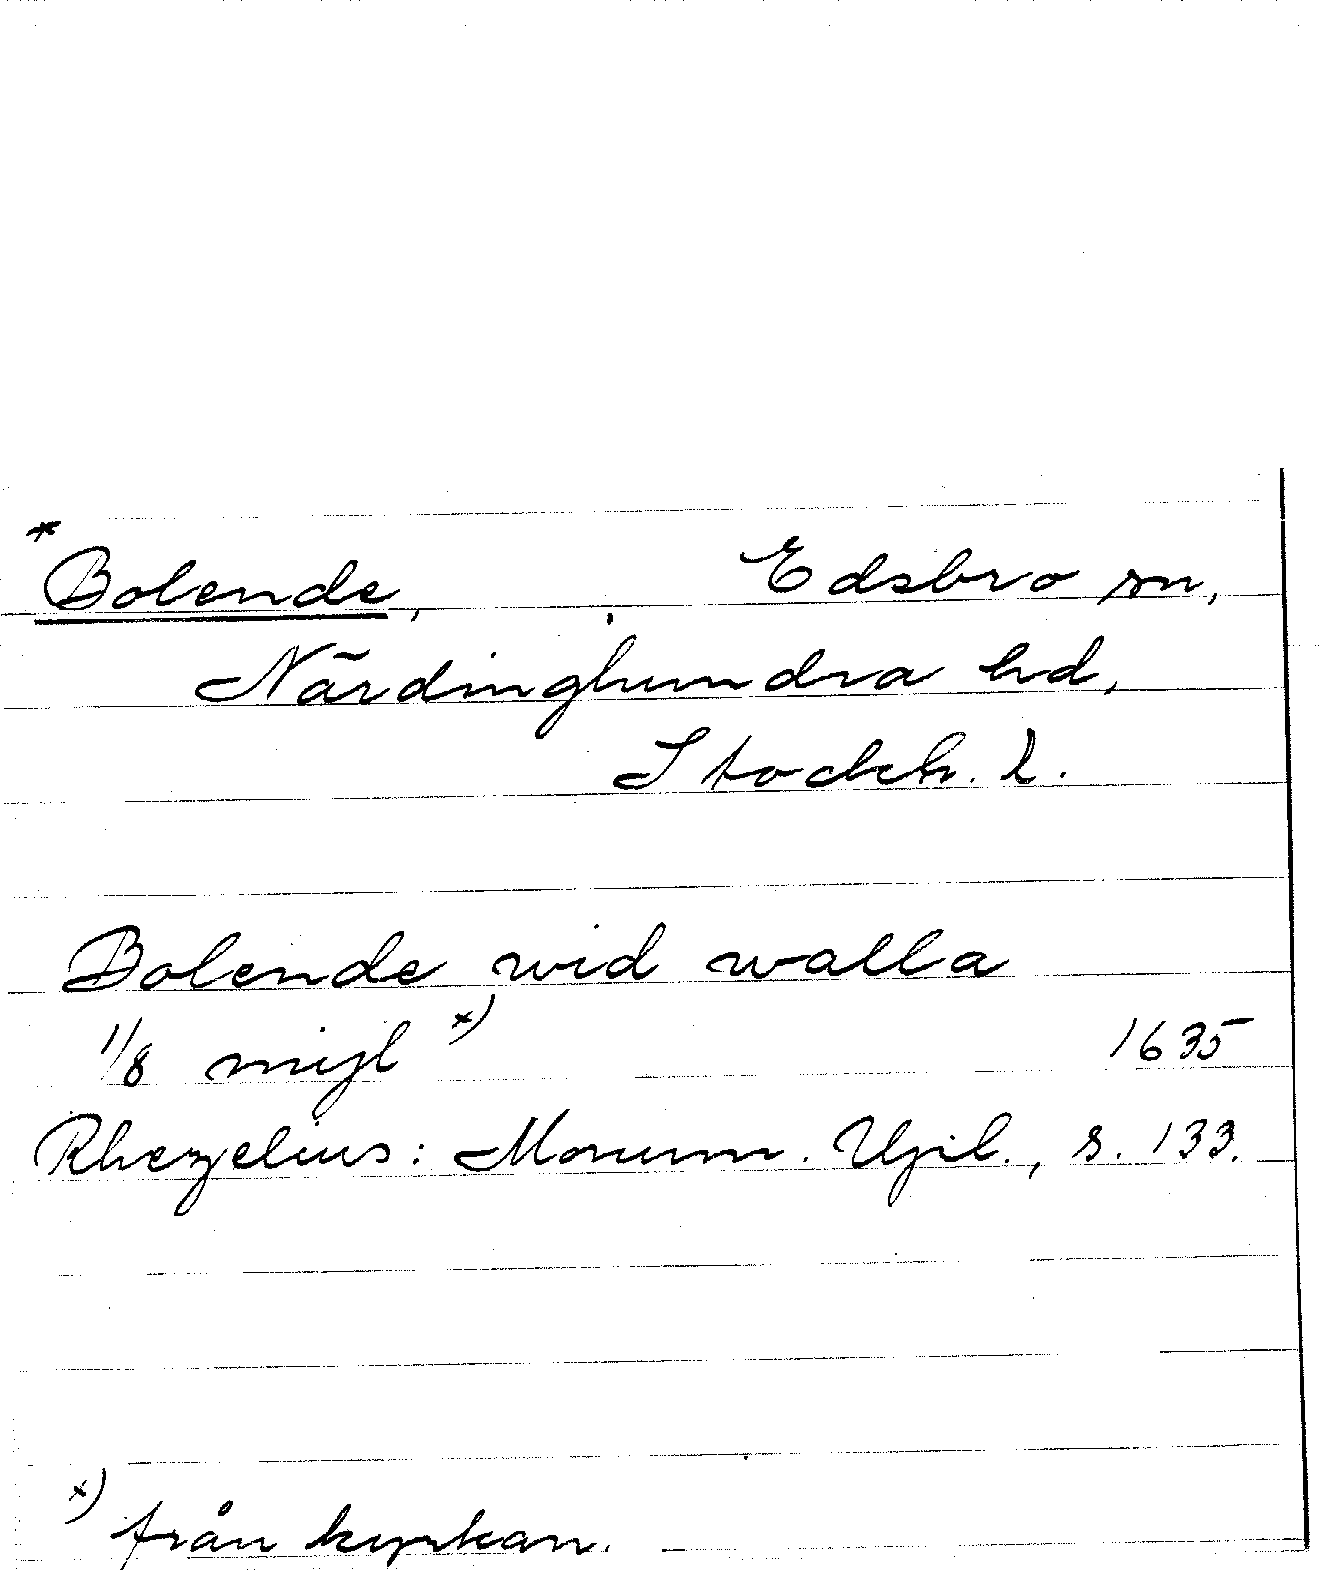 * Bolende, Edsbro sn,
Närdinghundra hd,
Stockh. l.
Bolende wid walla
1/8 mijl x) 1635
Rhezelius: Monum. Upl., s. 133.
x) från kyrkan.